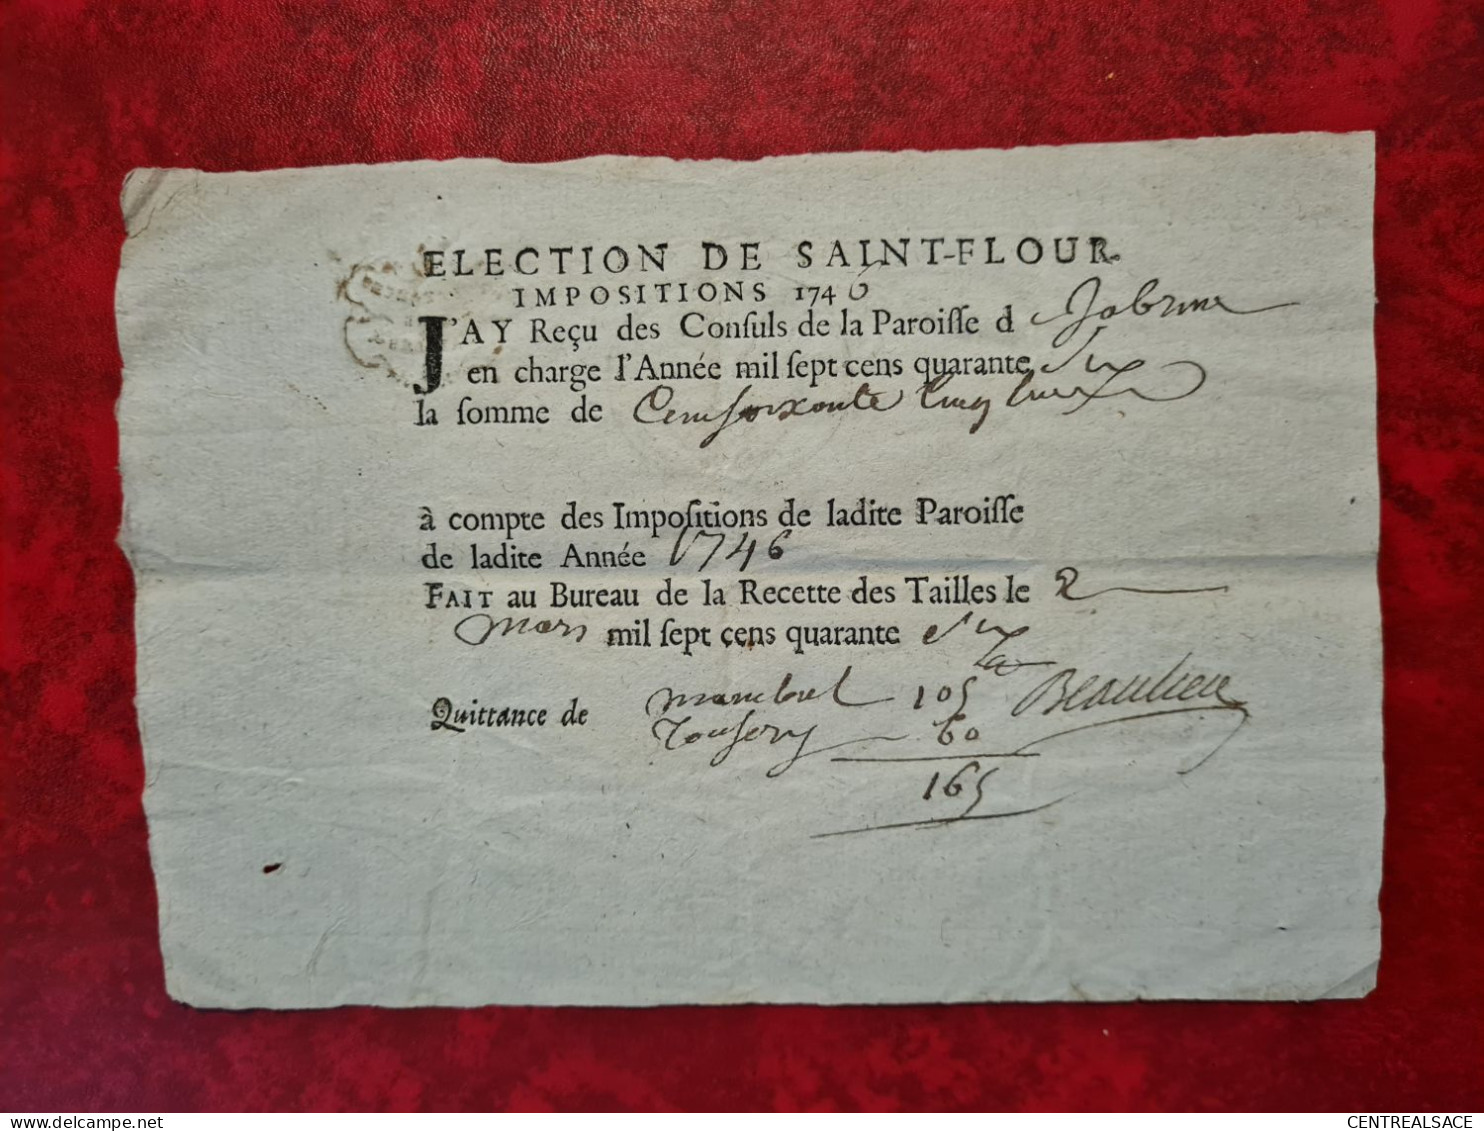 ELECTION DE SAINT-FLOUR.
IMPOSITIONS 1746
J'AY Reçu des Conſuls de la Paroiſſe d Jabrun
en charge l'Année mil ſept cens quarante Six
la ſomme de Cent soixante Cinq livres
à compte des Impoſitions de ladite Paroiſſe
de ladite Année 1746
FAIT au Bureau de la Recette des Tailles le 2
Mars mil ſept cens quarante Six
Quittance de 105 Beaulieu
60
165
delcampe.net
CENTREALSACE